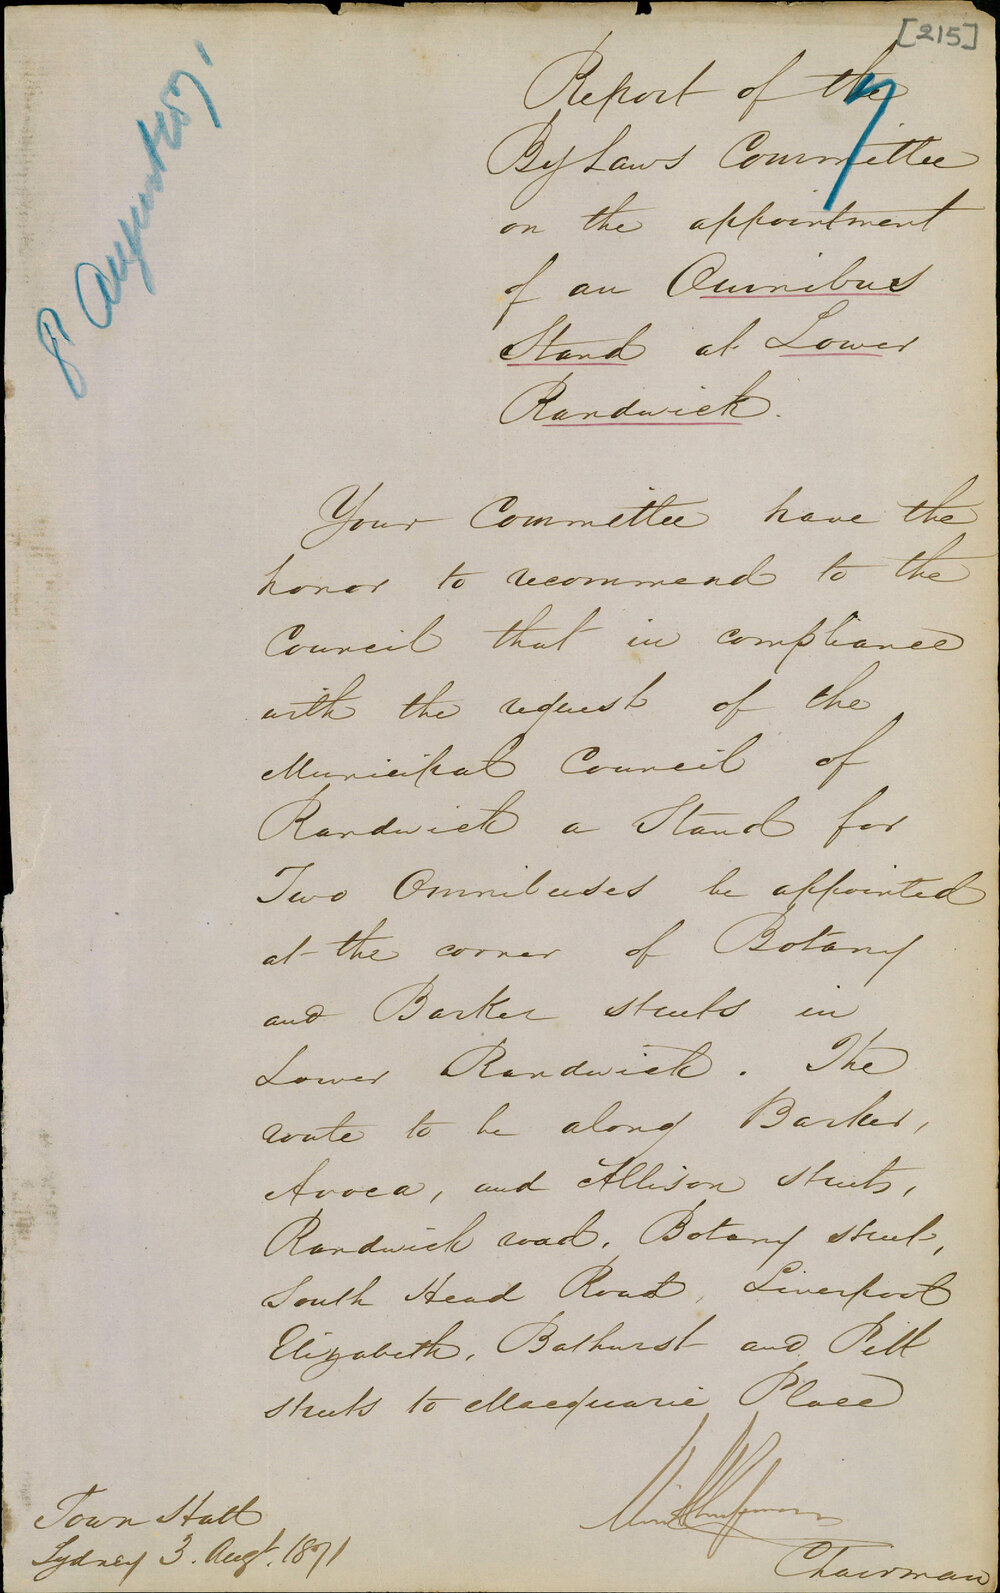 [215]
8 August 1871
7
Report of the
By Laws Committee
on the appointment
of an Omnibus
Stand at Lower
Randwick.
Your Committee have the
honor to recommend to the
Council that in compliance
with the request of the
Municipal Council of
Randwick a Stand for
Two Omnibuses be appointed
at the corner of Botany
and Barker streets in
Lower Randwick. The
route to be along Barker,
Avoca, and Allison streets,
Randwick road, Botany street,
South Head Road, Liverpool
Elizabeth, Bathurst and Pitt
streets to Macquarie Place
Chairman
Town Hall
Sydney 3. Augt. 1871